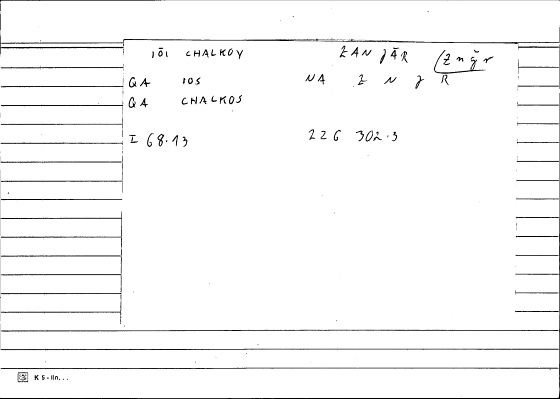 IŌI CHALKOY ZANJĀR (znǧr
QA IOS NA Z N J R
QA CHALKOS
I 68.13 226 302.3
K 5 - lin...